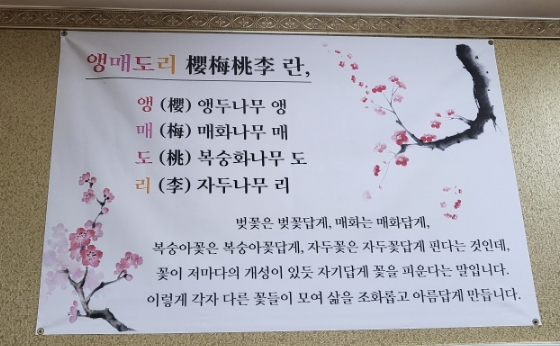 앵매도리 櫻梅桃李 란,
앵 (櫻) 앵두나무 앵
매 (梅) 매화나무 매
도 (桃) 복숭화나무 도
리 (李) 자두나무 리
벚꽃은 벚꽃답게, 매화는 매화답게,
복숭아꽃은 복숭아꽃답게, 자두꽃은 자두꽃답게 핀다는 것인데,
꽃이 저마다의 개성이 있듯 자기답게 꽃을 피운다는 말입니다.
이렇게 각자 다른 꽃들이 모여 삶을 조화롭고 아름답게 만듭니다.